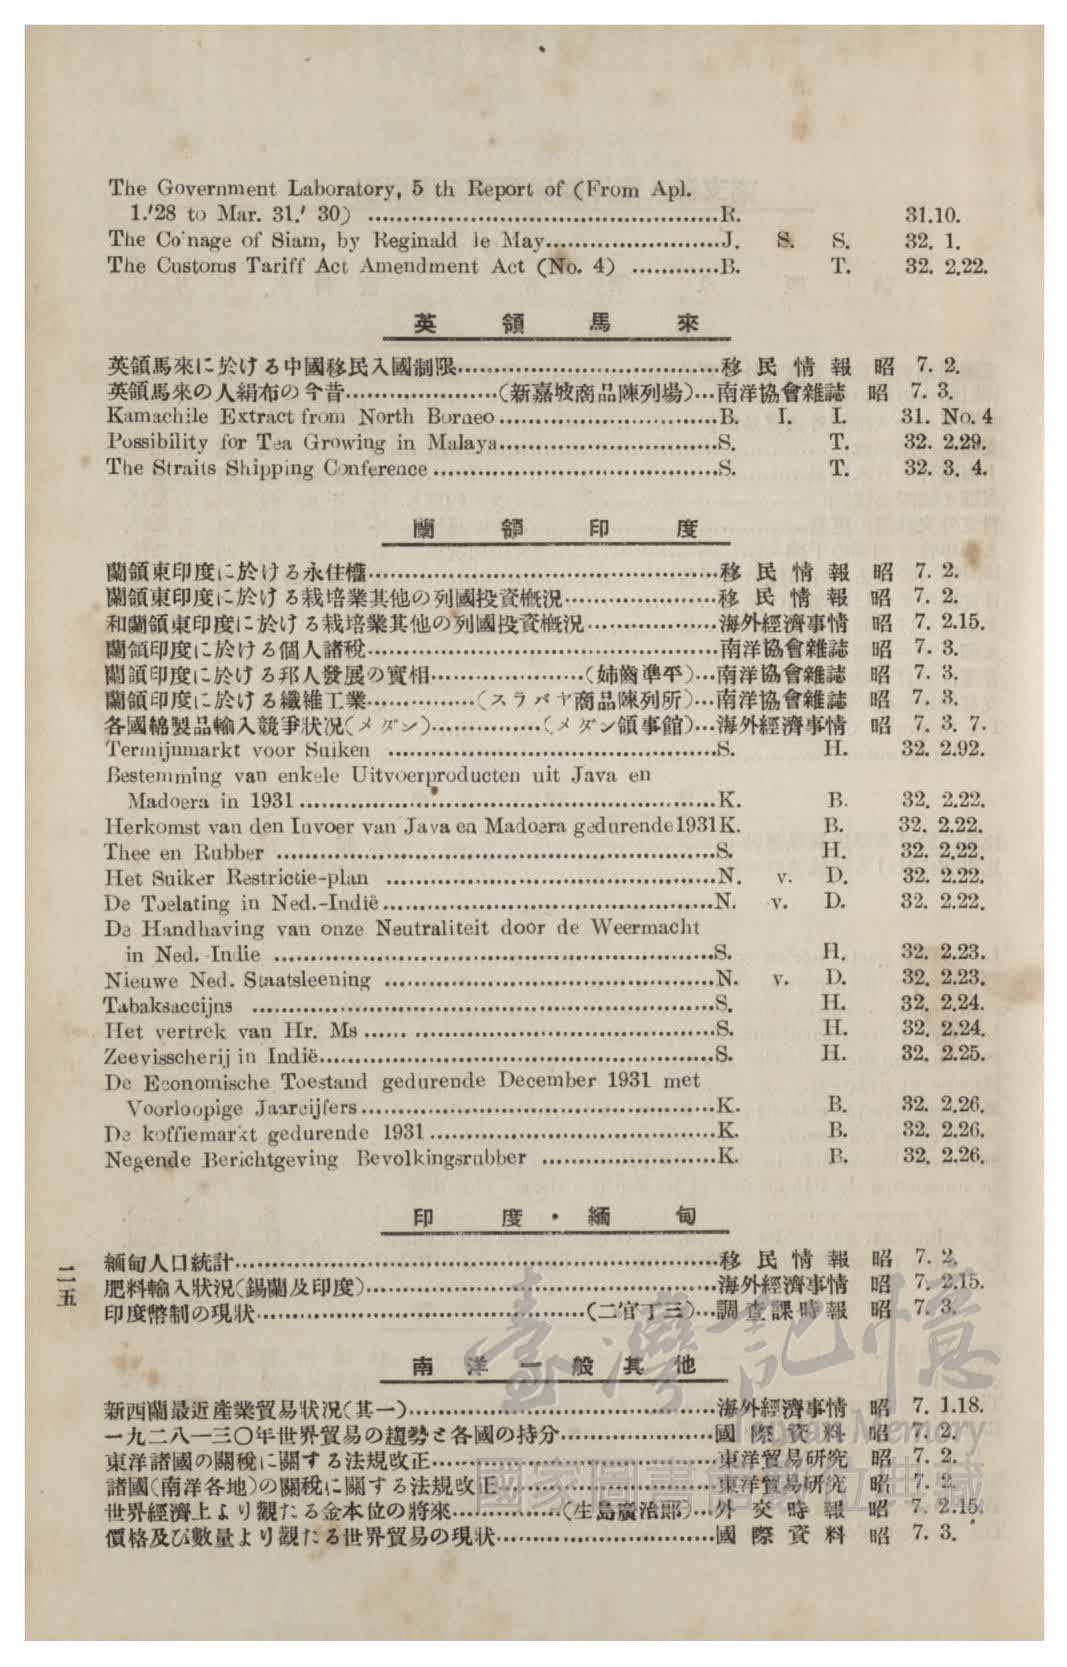 The Government Laboratory, 5 th Report of (From Apl.
1.'28 to Mar. 31.' 30) ........................................R. 31.10.
The Co'nage of Siam, by Reginald le May........................J. S. S. 32. 1.
The Customs Tariff Act Amendment Act (No. 4) ............B. T. 32. 2.22.
英領馬來
英領馬來に於ける中國移民入國制限....................................移民情報 昭 7. 2.
英領馬來の人絹布の今昔.....................(新嘉坡商品陳列場)...南洋協會雜誌 昭 7. 3.
Kamachile Extract from North Borneo ..............................B. I. I. 31. No. 4
Possibility for Tea Growing in Malaya..............................S. T. 32. 2.29.
The Straits Shipping Conference .......................................S. T. 32. 3. 4.
蘭領印度
蘭領東印度に於ける永住權................................................移民情報 昭 7. 2.
蘭領東印度に於ける栽培業其他の列國投資槪況.....................移民情報 昭 7. 2.
和蘭領東印度に於ける栽培業其他の列國投資槪況..................海外經濟事情 昭 7. 2.15.
蘭領印度に於ける個人諸稅................................................南洋協會雜誌 昭 7. 3.
蘭領印度に於ける邦人發展の實相.....................(姉齒準平)...南洋協會雜誌 昭 7. 3.
蘭領印度に於ける纖維工業...............(スラバヤ商品陳列所)...南洋協會雜誌 昭 7. 3.
各國綿製品輸入競爭狀況(メダン)...............(メダン領事館)...海外經濟事情 昭 7. 3. 7.
Termijnmarkt voor Suiken .............................................S. H. 32. 2.92.
Bestemming van enkele Uitvoerproducten uit Java en
Madoera in 1931 .........................................................K. B. 32. 2.22.
Herkomst van den Invoer van Java en Madoera gedurende1931K. B. 32. 2.22.
Thee en Rubber ............................................................S. H. 32. 2.22.
Het Suiker Restrictie-plan .............................................N. v. D. 32. 2.22.
De Toelating in Ned.-Indië.............................................N. v. D. 32. 2.22.
De Handhaving van onze Neutraliteit door de Weermacht
in Ned.-Indie ............................................................S. H. 32. 2.23.
Nieuwe Ned. Staatsleening .............................................N. v. D. 32. 2.23.
Tabaksaccijns ...............................................................S. H. 32. 2.24.
Het vertrek van Hr. Ms ...... .........................................S. H. 32. 2.24.
Zeevisscherij in Indië......................................................S. H. 32. 2.25.
De Economische Toestand gedurende December 1931 met
Voorloopige Jaarcijfers ................................................K. B. 32. 2.26.
De koffiemarkt gedurende 1931 .......................................K. B. 32. 2.26.
Negende Berichtgeving Bevolkingsrubber ........................K. B. 32. 2.26.
印度・緬甸
緬甸人口統計..................................................................移民情報 昭 7. 2.
肥料輸入狀況(錫蘭及印度)................................................海外經濟事情 昭 7. 2.15.
印度幣制の現狀.............................................(二宮丁三)...調查課時報 昭 7. 3.
南洋一般其他
新西蘭最近產業貿易狀況(其一)..........................................海外經濟事情 昭 7. 1.18.
一九二八―三〇年世界貿易の趨勢と各國の持分.....................國際資料 昭 7. 2.
東洋諸國の關稅に關する法規改正.......................................東洋貿易研究 昭 7. 2.
諸國(南洋各地)の關稅に關する法規改正..............................東洋貿易研究 昭 7. 2.
世界經濟上より觀たる金本位の將來...............(生島廣治郎)...外交時報 昭 7. 2.15.
價格及び數量より觀たる世界貿易の現狀..............................國際資料 昭 7. 3.
二五
臺灣記憶
Taiwan Memory
國家圖書館數位典藏